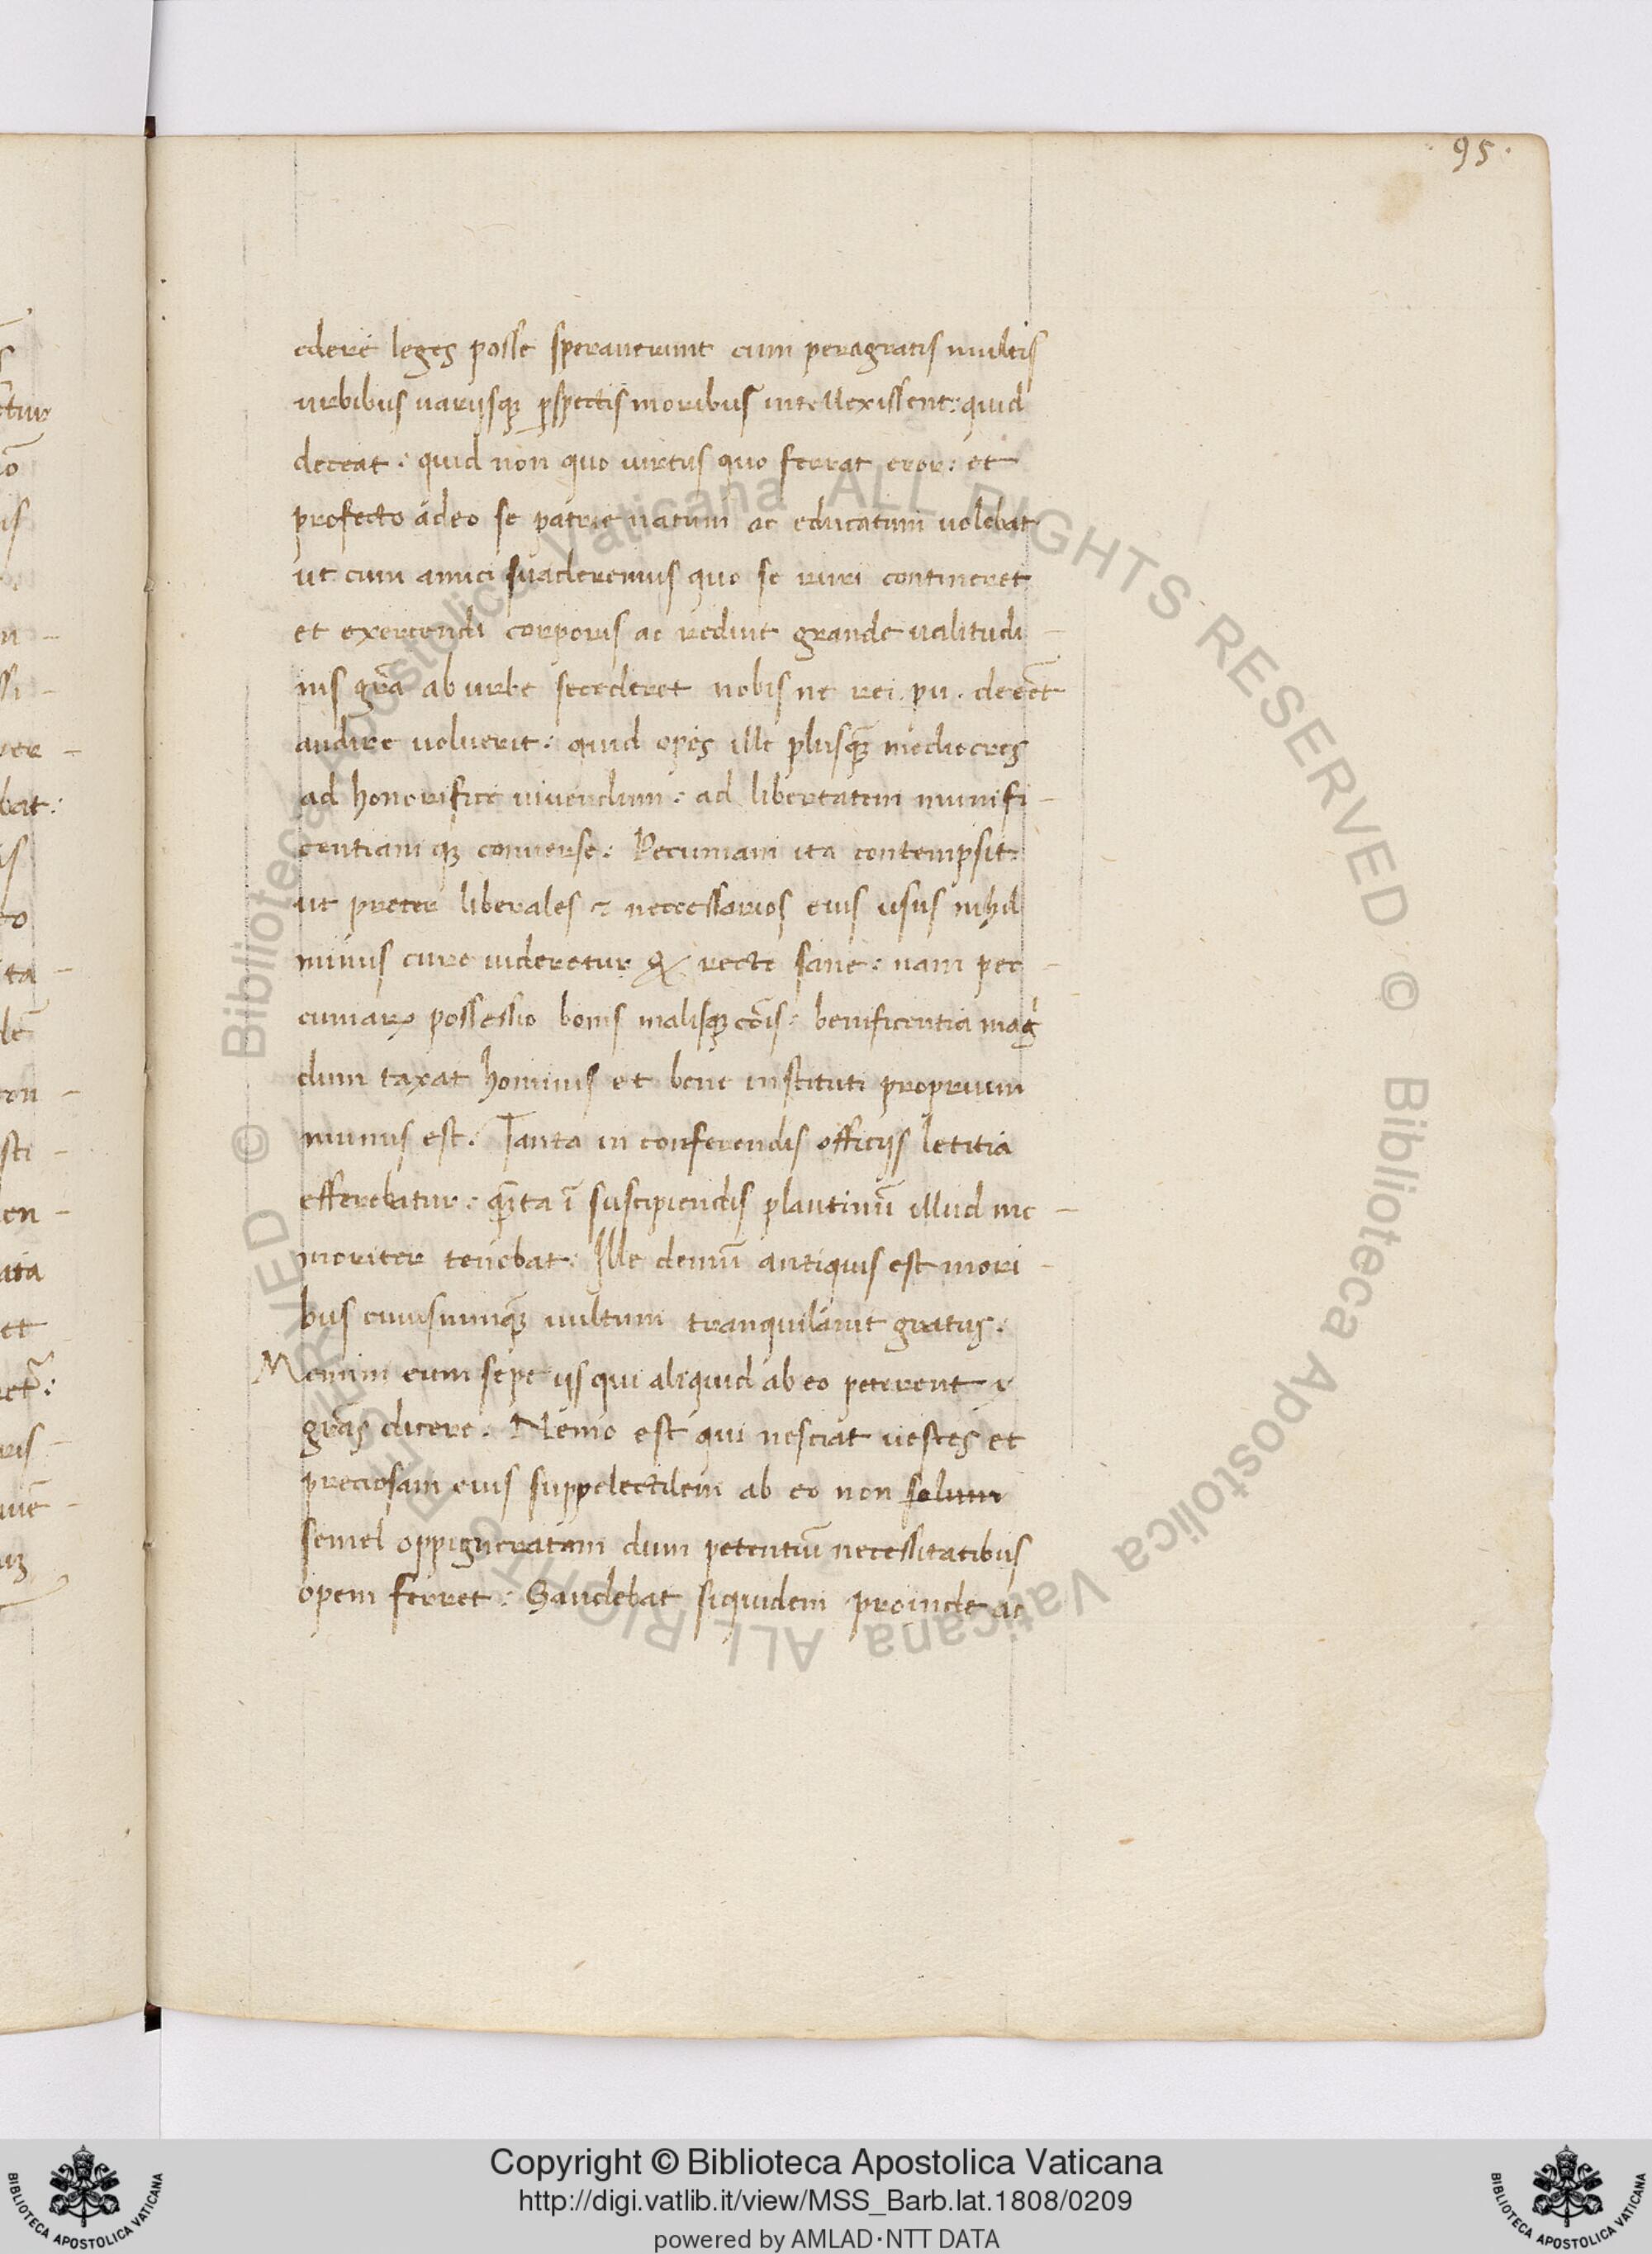 95.
edere leges posse sperauerunt cum peragratis multis
urbibus uarijsqꝫ ꝑspectis moribus intellexissent: quid
deceat: quid non quo uirtus quo ferrat eror: et
profecto adeo se patrie natum ac educatum uolebat
ut cum amici suaderemus quo se ruri contineret
et exercendi corporis ac grande ualitudi-
nis grā ab urbe secederet nobis ne rei. pu. deeēt
audire uoluerit: quid opes ille plusqꝫ mediocres
ad honorifice uiuendum: ad libertatem munifi-
centiamqꝫ conuerse: Pecuniam ita contempsit
ut preter liberales ⁊ neccessarios eius usus nihil
minus cure uideretur & recte sane: nam pec-
cuniaꝝ possessio bonis malisqꝫ cōis: benificentia
dum taxat hominis et bene instituti proprium
munus est. Tanta in conferendis officijs letitia
efferebatur: quāta ī suscipiendis plautinū illud me-
moriter tenebat: Ille demū antiquis est mori-
bus uultum tranquilauit gratus:
Memini eum sepe ijs qui aliquid ab eo peterent
grās dicere. Nemo est qui nesciat uestes et
preciosam eius suppelectilem ab eo non solum
semel oppigneratam dum petentiū necessitatibus
opem ferret: Gaudebat siquidem proinde ac
Copyright © Biblioteca Apostolica Vaticana
http://digi.vatlib.it/view/MSS_Barb.lat.1808/0209
powered by AMLAD·NTT DATA